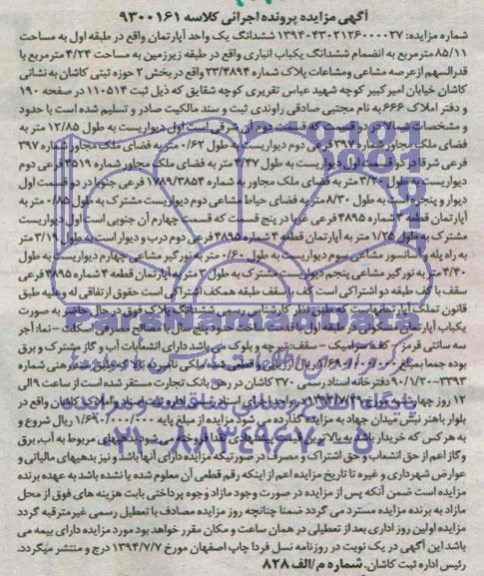 آگهی مزایده پرونده اجرائی کلاسه ۹۳۰۰۱۶۱
شماره مزایده: ۱۳۹۴۰۴۳۰۲۱۲۶۰۰۰۰۲۷ ششدانگ یک واحد آپارتمان واقع در طبقه اول به مساحت
۸۵/۱۱ مترمربع به انضمام ششدانگ یکباب انباری واقع در طبقه زیرزمین به مساحت ۴/۲۴ مترمربع با
قدرالسهم از عرصه مشاعی و مشاعات پلاک شماره ۳۳/۴۸۹۴ واقع در بخش ۲ حوزه ثبتی کاشان به نشانی
کاشان خیابان امیرکبیر کوچه شهید عباس تقریری کوچه شقایق که ذیل ثبت ۱۱۰۵۱۴ در صفحه ۱۹۰
و دفتر املاک ۶۶۶ به نام مجتبی صادقی راوندی ثبت و سند مالکیت صادر و تسلیم شده است با حدود
و مشخصات شمالا در دو قسمت که قسمت دوم آن شرقی است اول دیواریست به طول ۱۲/۸۵ متر به
فضای ملک مجاور شماره ۳۹۷ فرعی دوم دیواریست به طول ۰/۶۲ متر به فضای ملک مجاور شماره ۳۹۷
فرعی شرقا در دو قسمت اول دیواریست به طول ۴/۴۷ متر به فضای ملک مجاور شماره ۴۵۱۹ فرعی دوم
دیواریست به طول ۳/۲۰ متر به فضای ملک مجاور به شماره ۱۷۸۹/۳۸۵۴ فرعی جنوبا در دو قسمت اول
دیوار و پنجره است به طول ۸/۳۰ متر به فضای حیاط مشاعی دوم دیواریست مشترک به طول ۰/۸۵ متر به
آپارتمان قطعه ۳ شماره ۴۸۹۵ فرعی غربا در پنج قسمت که قسمت چهارم آن جنوبی است اول دیواریست
مشترک به طول ۱/۲۵ متر به آپارتمان قطعه ۴ شماره ۴۸۹۵ فرعی دوم درب و دیوار است به طول ۳/۱۹ متر
به راه پله و آسانسور مشاعی سوم دیواریست به طول ۰/۶۰ متر به نورگیر مشاعی چهارم دیواریست به طول
۴/۴۰ متر به نورگیر مشاعی پنجم دیواریست مشترک به طول ۳ متر به آپارتمان قطعه ۴ شماره ۴۸۹۵ فرعی
سقف با کف طبقه دو اشتراکی است کف با سقف طبقه همکف اشتراکی است حقوق ارتفاقی له و علیه طبق
قانون تملک آپارتمانهاست که طبق نظر کارشناس رسمی ششدانگ پلاک فوق در حال حاضر به صورت
یکباب آپارتمان مسکونی در طبقه اول
سه سانتی قرمز کف سرامیک - سقف تیرچه و بلوک می باشد دارای انشعابات آب و گاز مشترک و برق
بوده جمعا به مبلغ ۱/۶۹۰/۰۰۰/۰۰۰ ریال ارزیابی
۳۳۹۳-۹۰/۱/۲۰ دفترخانه اسناد رسمی ۳۷۰ کاشان در رهن بانک تجارت مستقر شده است از ساعت ۹ الی
۱۲ روز چهارشنبه مورخ ۱۳۹۴/۷/۲۹ در واحد اجرای اسناد رسمی اداره ثبت اسناد و املاک کاشان واقع در
بلوار باهنر نبش میدان جهاد به مزایده گذارده می شود مزایده از مبلغ پایه ۱/۶۹۰/۰۰۰/۰۰۰ ریال شروع و
به هر کس که خریدار باشد به بالاترین قیمت پیشنهادی نقدا فروخته می شود بدهیهای مربوط به آب، برق
و گاز اعم از حق انشعاب و حق اشتراک و مصرف در صورتیکه مزایده دارای آنها باشد و نیز بدهیهای مالیاتی و
عوارض شهرداری و غیره تا تاریخ مزایده اعم از اینکه رقم قطعی آن معلوم شده یا نشده باشد به عهده برنده
مزایده است ضمن آنکه پس از مزایده در صورت وجود مازاد وجوه پرداختی بابت هزینه های فوق از محل
مازاد به برنده مزایده مسترد می گردد ضمنا چنانچه روز مزایده مصادف با تعطیل رسمی غیرمترقبه گردد
مزایده اولین روز اداری بعد از تعطیلی در همان ساعت و مکان مقرر خواهد بود مورد مزایده دارای بیمه می
باشد. این آگهی در یک نوبت در روزنامه نسل فردا چاپ اصفهان مورخ ۱۳۹۴/۷/۷ درج و منتشر میگردد.
رئیس اداره ثبت کاشان. شماره م/الف ۸۲۸
ParsNamadData
پایگاه اطلاع رسانی مناقصه و مزایده
۰۲۱-۸۸۳۴۹۶۷۰-۵